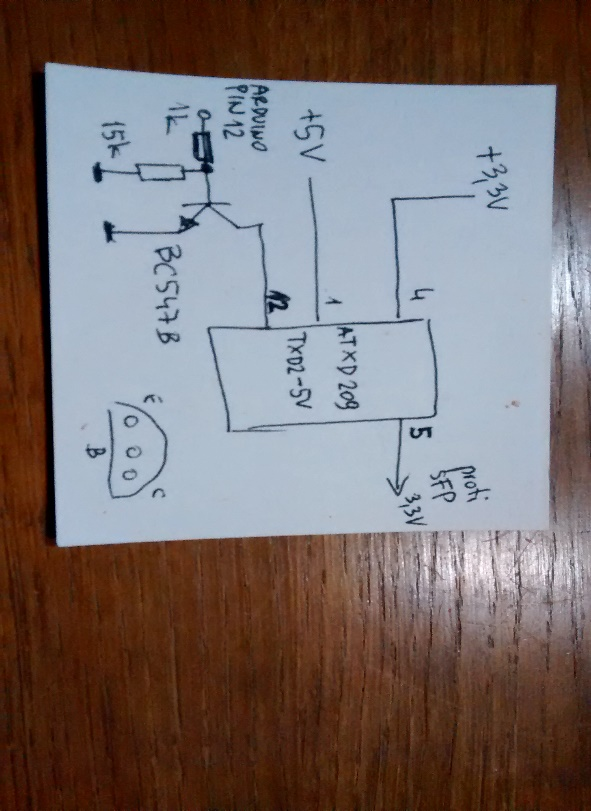 +3,3V
+5V
ARDUINO
PIN 12
1k
15k
BC547B
4
1
12
ATXD209
TXD2-5V
5
proti
SFP
3,3V
E
B
C